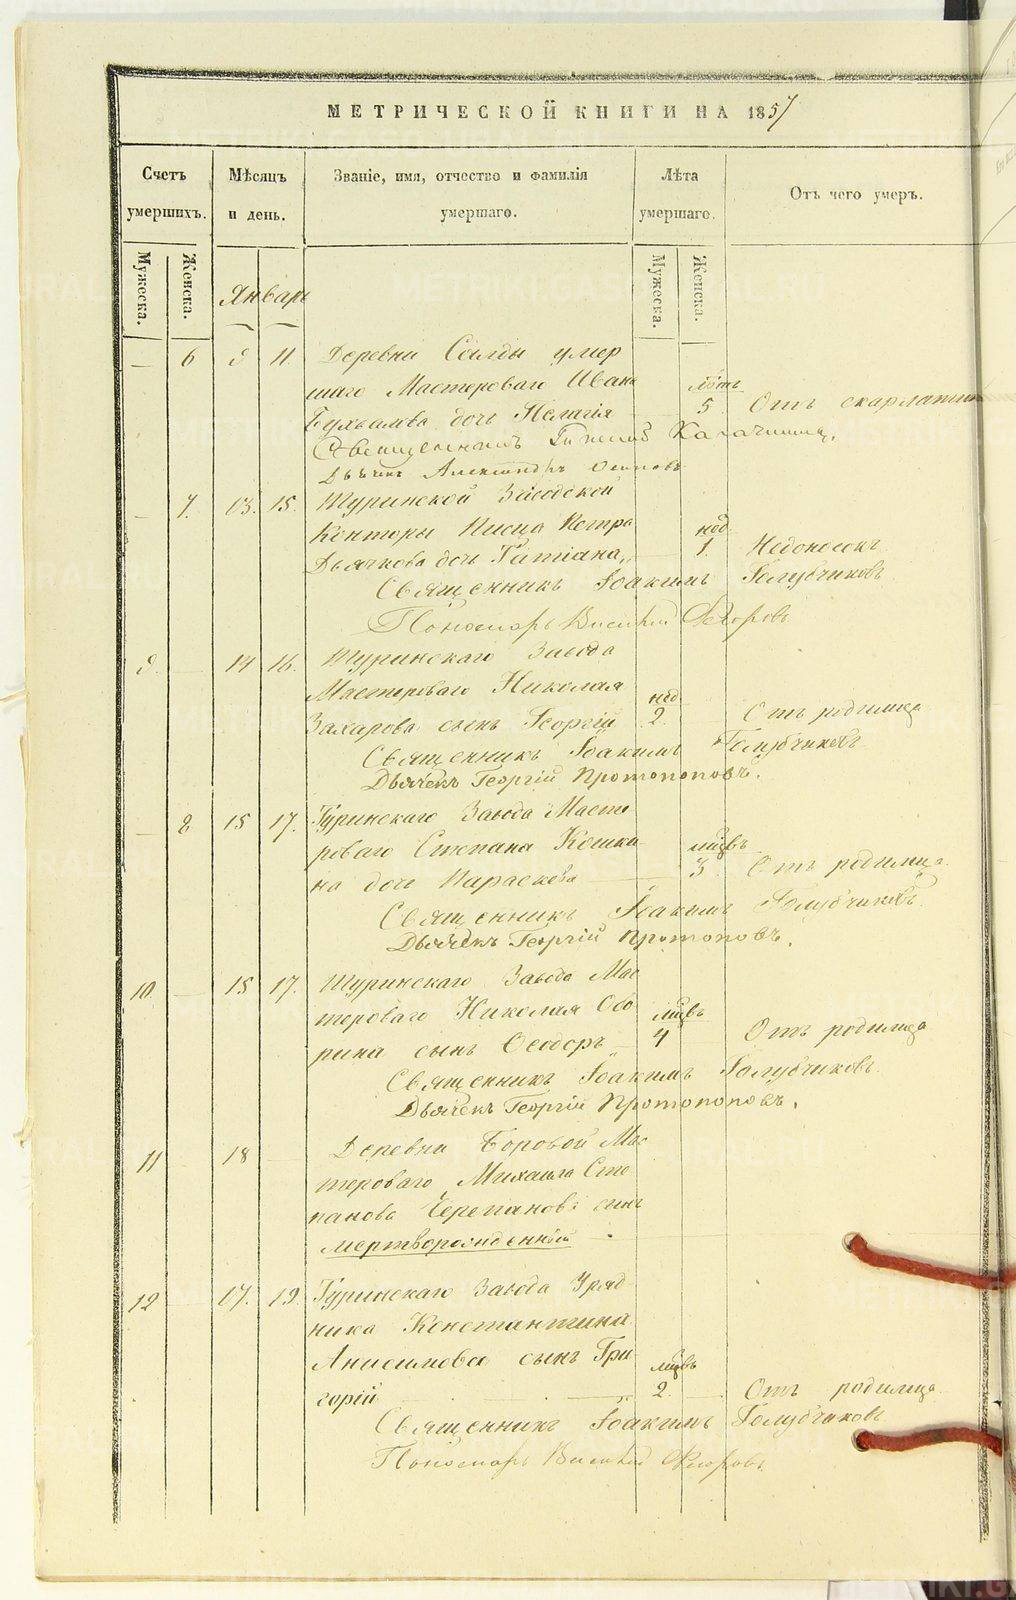 МЕТРИЧЕСКОЙ КНИГИ НА 1857
Счетъ умершихъ. Мѣсяцъ и день. Званіе, имя, отчество и фамилія умершаго. Лѣта умершаго. Отъ чего умеръ.
Мужеска. Женска. Мужеска. Женска.
Январь
— 6 9 11 Деревни Салды умер
шаго Мастероваго Ивана лѣтъ
дочь Пелагія 5 Отъ скарлатины
Священникъ
Дьячекъ Александръ Осиповъ
— 7. 13. 15. Туринской Заводской
Конторы Писца Петра нед.
Дьячкова дочь Татіана 1. Недоносокъ
Священникъ Іоакимъ Голубчиковъ
Пономарь Василій Флоровъ
9. — 14 16. Туринскаго Завода
Мастероваго Николая нед
Захарова сынъ Георгій 2. Отъ родимца
Священникъ Іоакимъ Голубчиковъ
Дьячекъ Георгій Протопоповъ.
— 8 15 17. Туринскаго Завода Масте
роваго Степана Кошки мцвъ
на дочь Параскева 3 Отъ родимца
Священникъ Іоакимъ Голубчиковъ
Дьячекъ Георгій Протопоповъ.
10. — 15 17. Туринскаго Завода Мас
тероваго Николая мцвъ
рина сынъ Ѳеодоръ 4 Отъ родимца
Священникъ Іоакимъ Голубчиковъ
Дьячекъ Георгій Протопоповъ.
11 18 Деревни Боровой Мас
тероваго Михаила Сте
панова Черепанова сынъ
мертворожденный
12 17. 19. Туринскаго Завода Уряд
ника Константина
Анисимова сынъ Гри мцвъ
горій 2. — Отъ родимца
Священникъ Іоакимъ Голубчиковъ
Пономарь Василій Флоровъ